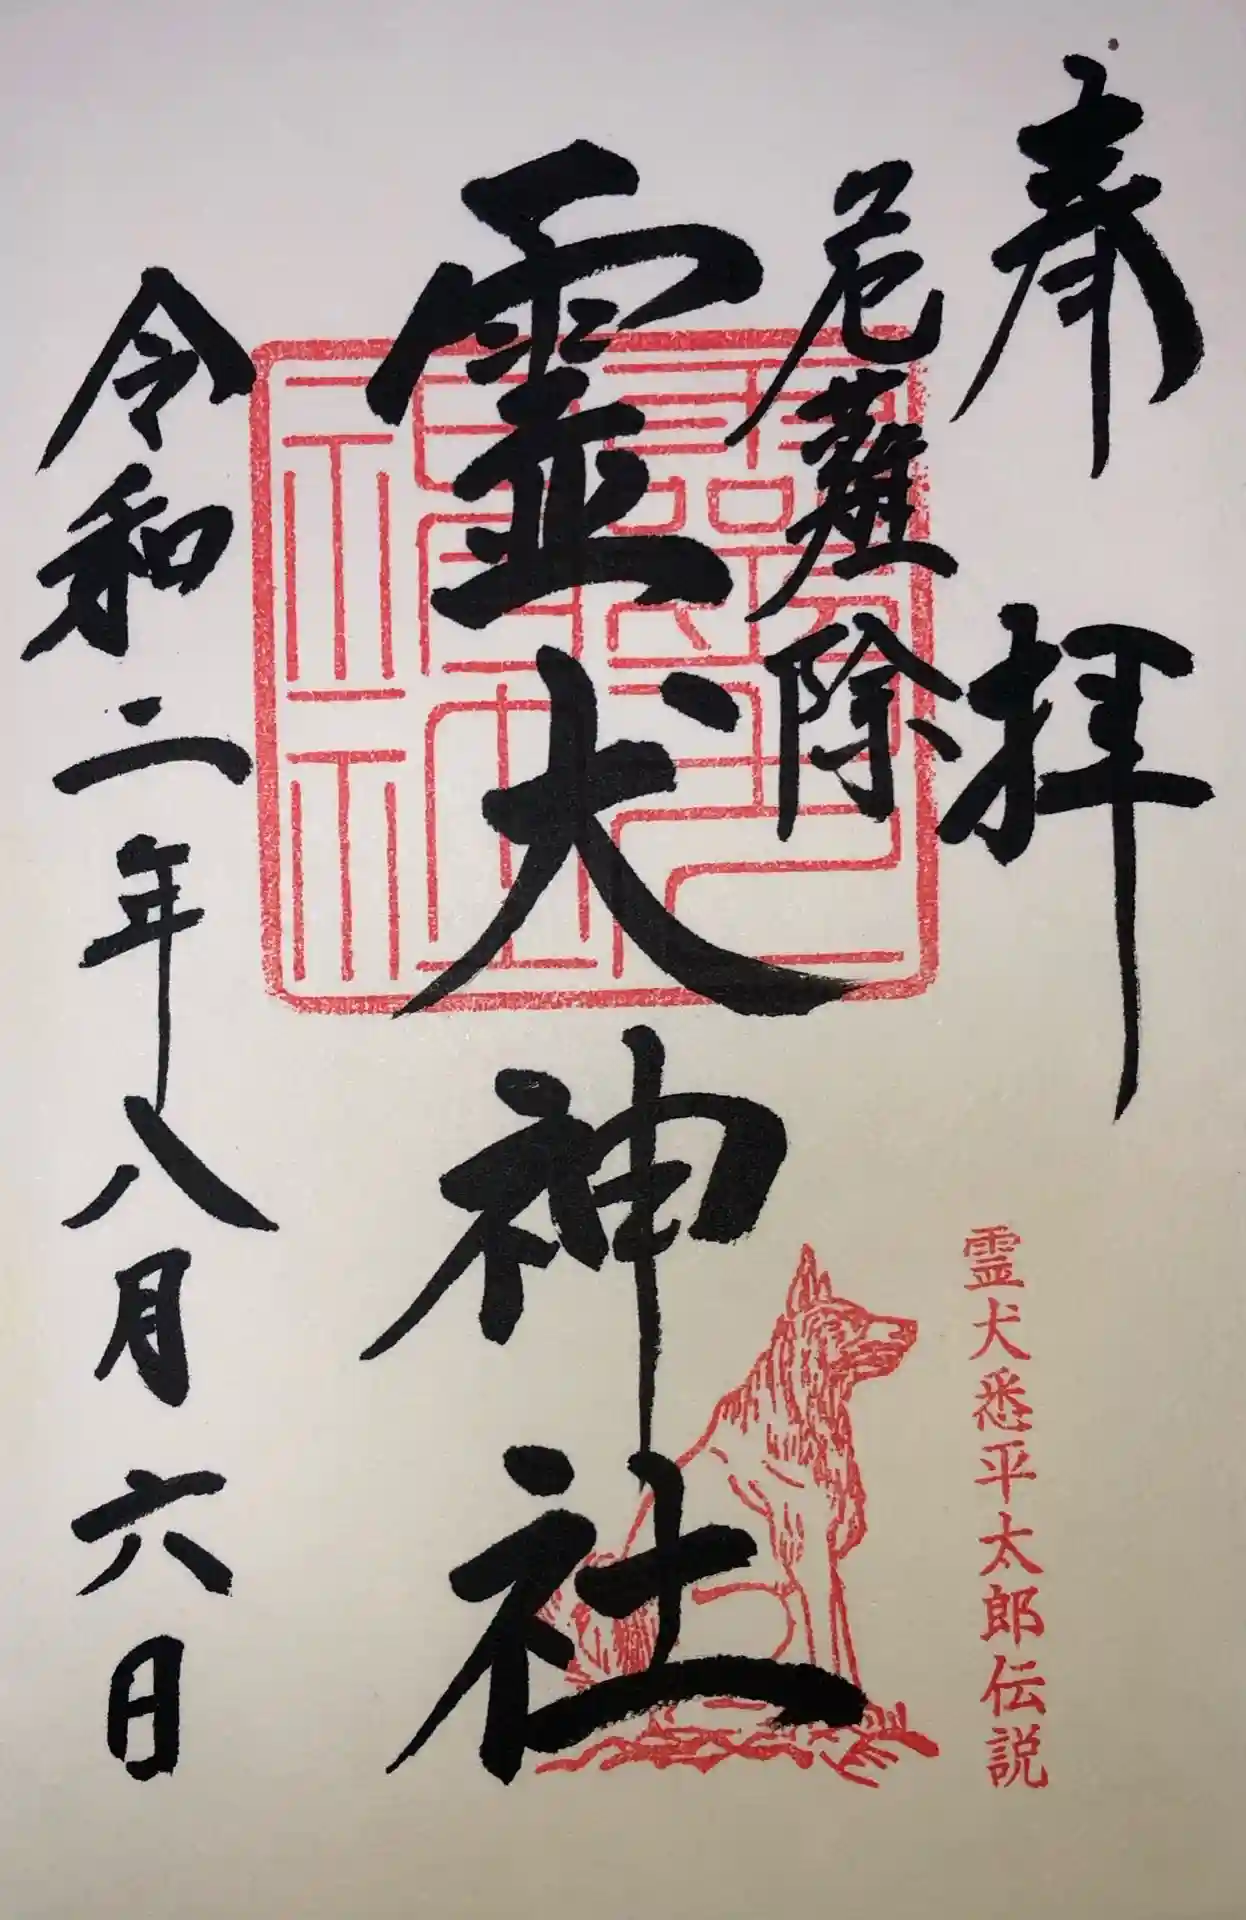 奉拝
危難除
霊犬神社
令和二年八月六日
霊犬悉平太郎伝説